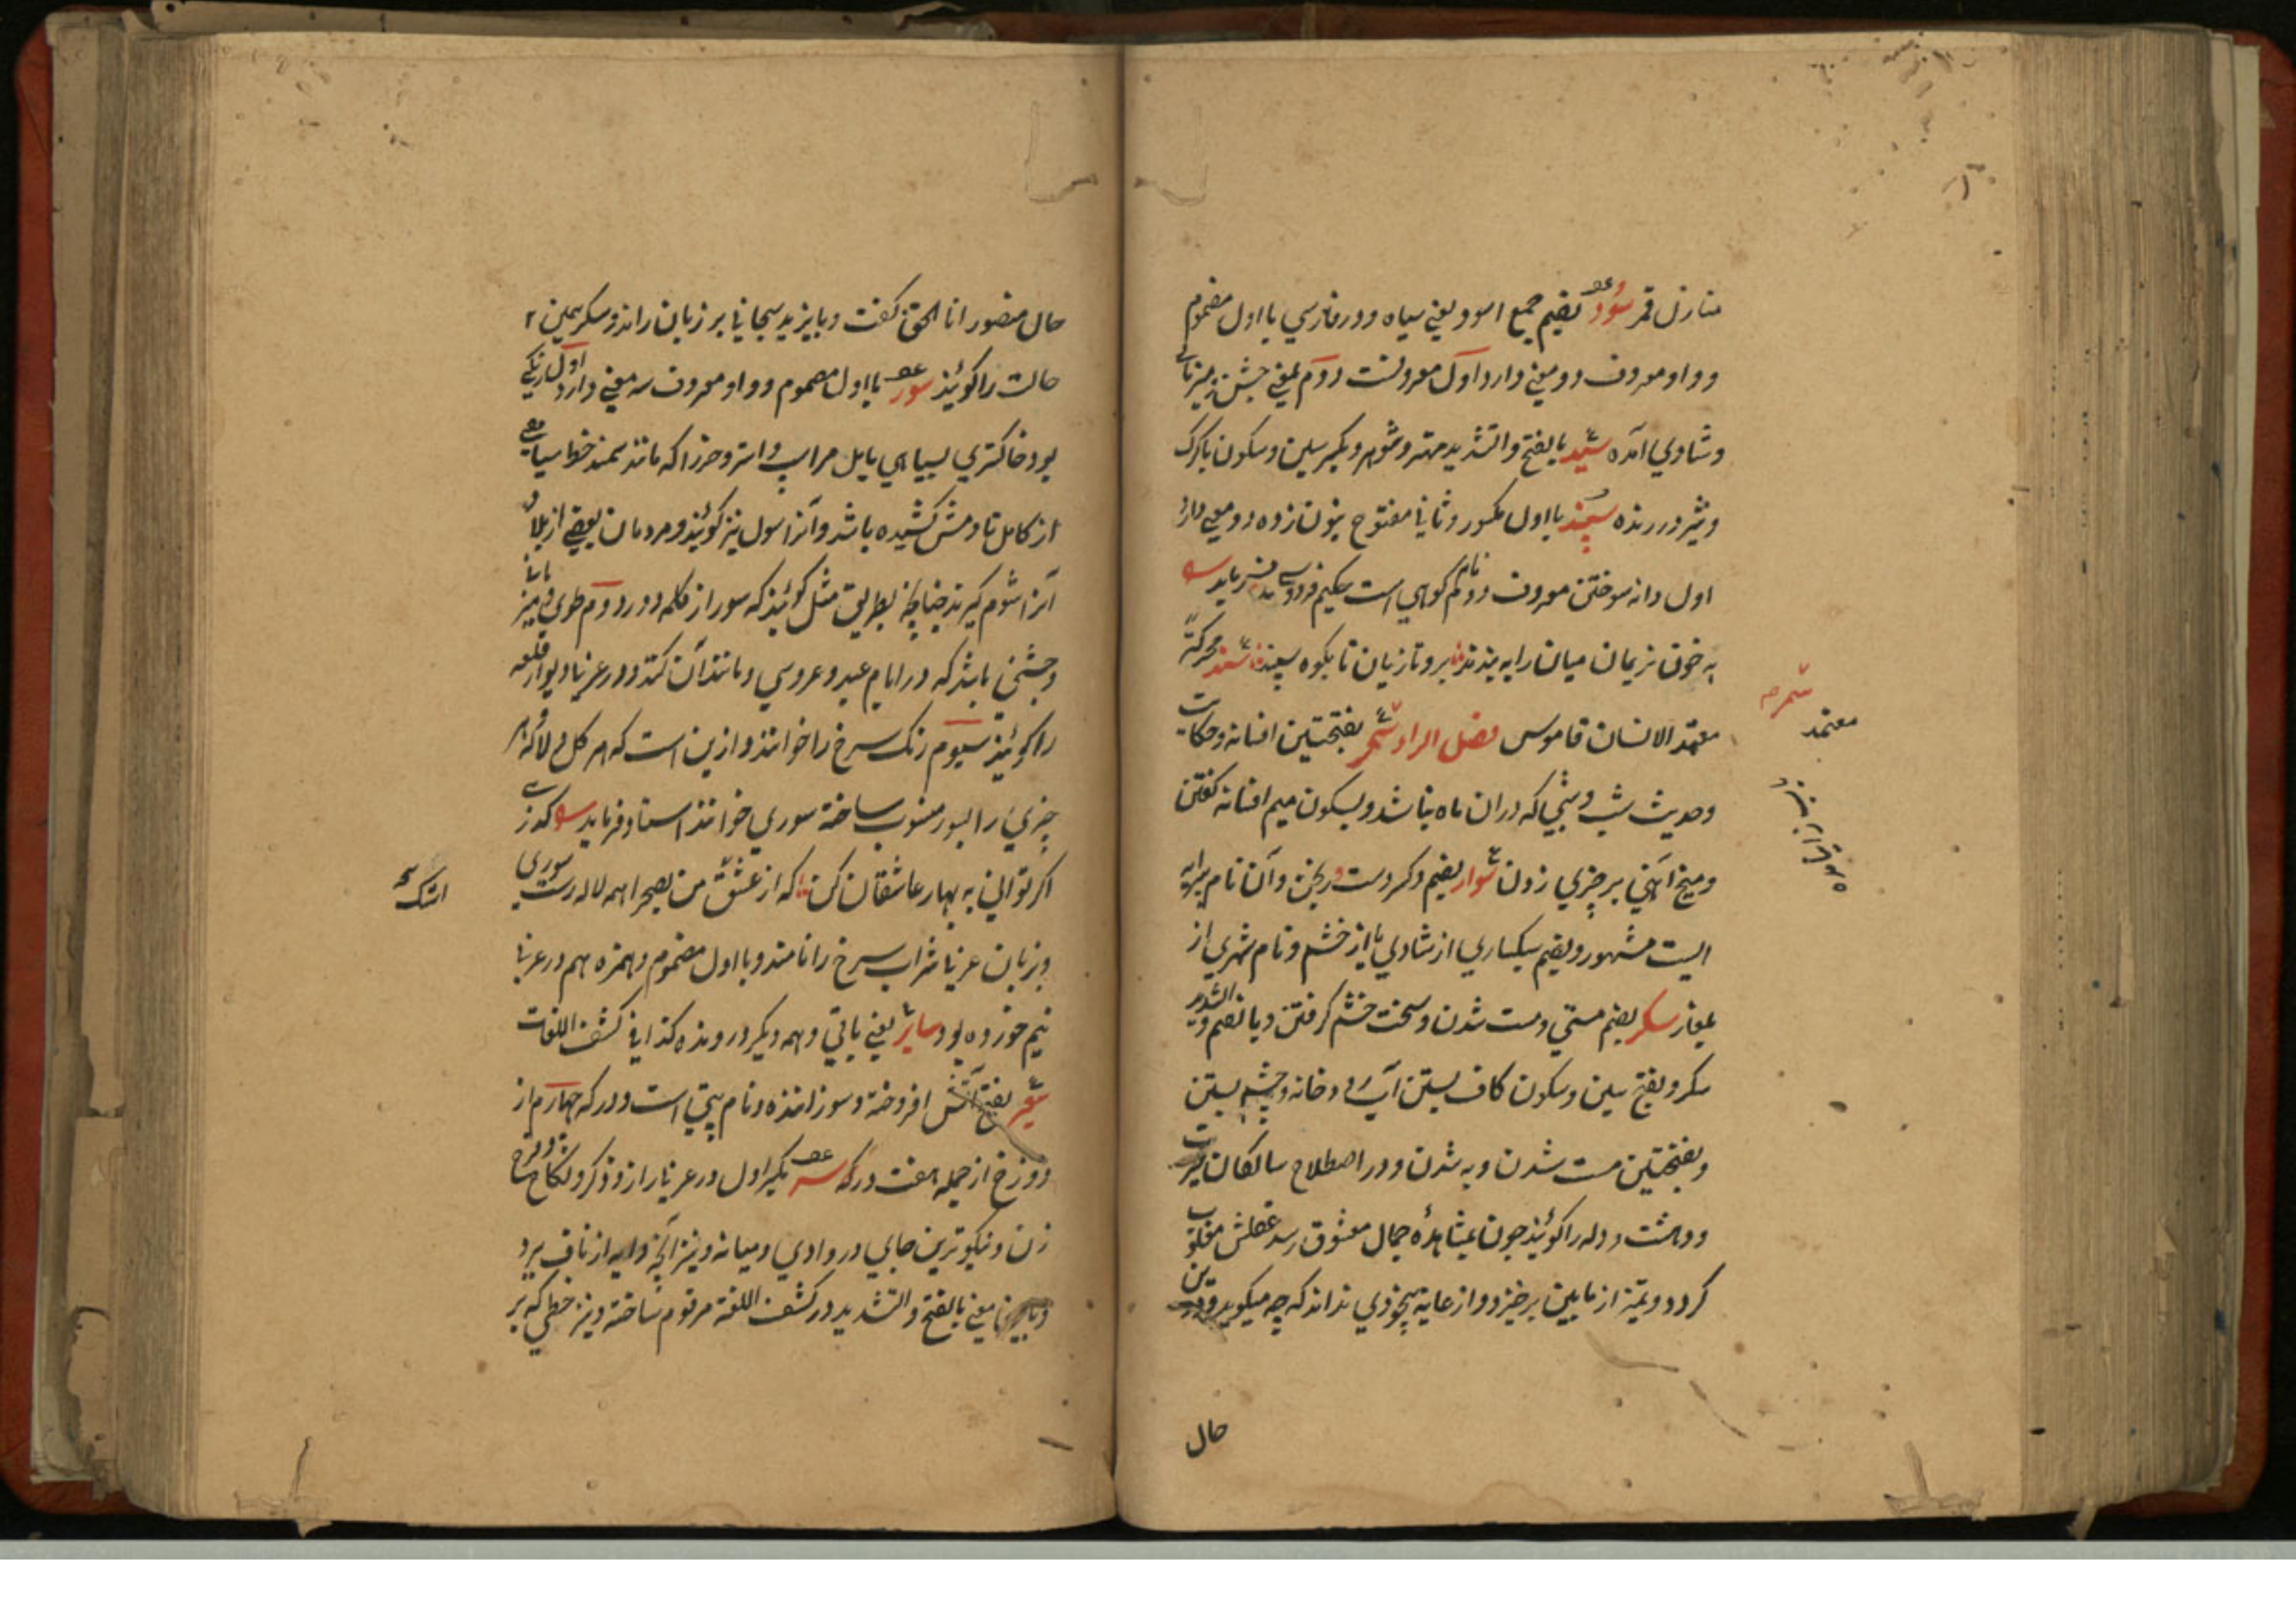 منازل قمر سود بضم جمع اسود یعنی سیاه و در فارسی با اول مضموم
و واو معروف دو معنی دارد اول معروفست دوم بمعنی جشن
و شادی آمده سید بالفتح و التشدید مهتر و شوهر و بکسر سین و سکون یا گرگ
و شیر درنده سپند با اول مکسور و ثانی مفتوح بنون زده دو معنی دارد
اول دانه سوختن معروف دوم نام کوهی است حکیم فردوسی فرماید
به خون نریمان میان را به بند برو تازیان تا بکوه سپند سند محرکة
معتمد الانسان قاموس فصل الراء سمر بفتحتین افسانه و حکایت
و حدیث شب و شبی که دران ماه نباشد و بسکون میم افسانه گفتن
و میخ آهنی بر چیزی زدن سوار بضم و کسر دست و آن نام پیرایه
ایست مشهور و بضم سبکساری از شادی یا از خشم و نام شهری از
سکر بضم مستی و مست شدن و سخت خشم گرفتن و بالضم و التشدید
سکر و بفتح سین و سکون کاف بستن آب و خانه و چشم بستن
و بفتحتین مست شدن و به شدن و در اصطلاح سالکان حیرت
و دهشت و وله را گویند چون بمشاهده جمال معشوق رسد عقلش مغلوب
گردد و تمیز از مابین برخیزد و از غایة بیخودی نداند که چه میگوید
حال
معتمد
حال منصور انا الحق گفت و بایزید سبحانی بر زبان راند و سکر همین
حالت را گویند سور با اول مضموم و واو معروف سه معنی دارد اول رنگی
بود خاکستری بسیاهی مایل مر اسپ و استر و خر را که مانند سمند خط سیاهی
از کاکل تا دمش کشیده باشد و آنرا سول نیز گویند و مردمان بعضی از بلاد
آنرا شوم گیرند چنانچه بطریق مثل گویند که سور از گله دور دوم طوی
و جشنی باشد که در ایام عید و عروسی و مانند آن کنند و در عربی دیوار قلعه
را گویند سیوم رنگ سرخ را خوانند و ازین است که هر گل و لاله
چیزی را بسور منسوب ساخته سوری خوانند استاد فرماید
اگر توانی به بهار عاشقان کن که از عشق من بصحرا همه لاله رست سوری
و زبان عربی شراب سرخ را نامند و با اول مضموم و همزه هم در عربی
نیم خورده بود سایر یعنی باقی و همه و دیگر و رونده کذا فی کشف اللغات
سعیر بفتح آتش افروخته و سوزاننده و نام بتی است و درکه چهارم از
دوزخ از جمله هفت درکه سر بکسر اول در عربی راز و ذکر و نکاح
زن و نیکوترین جای در وادی و میانه و نیز آنچه دایه از ناف برد
معنی بالفتح و التشدید در کشف اللغة مرقوم ساخته و نیز خطی که بر